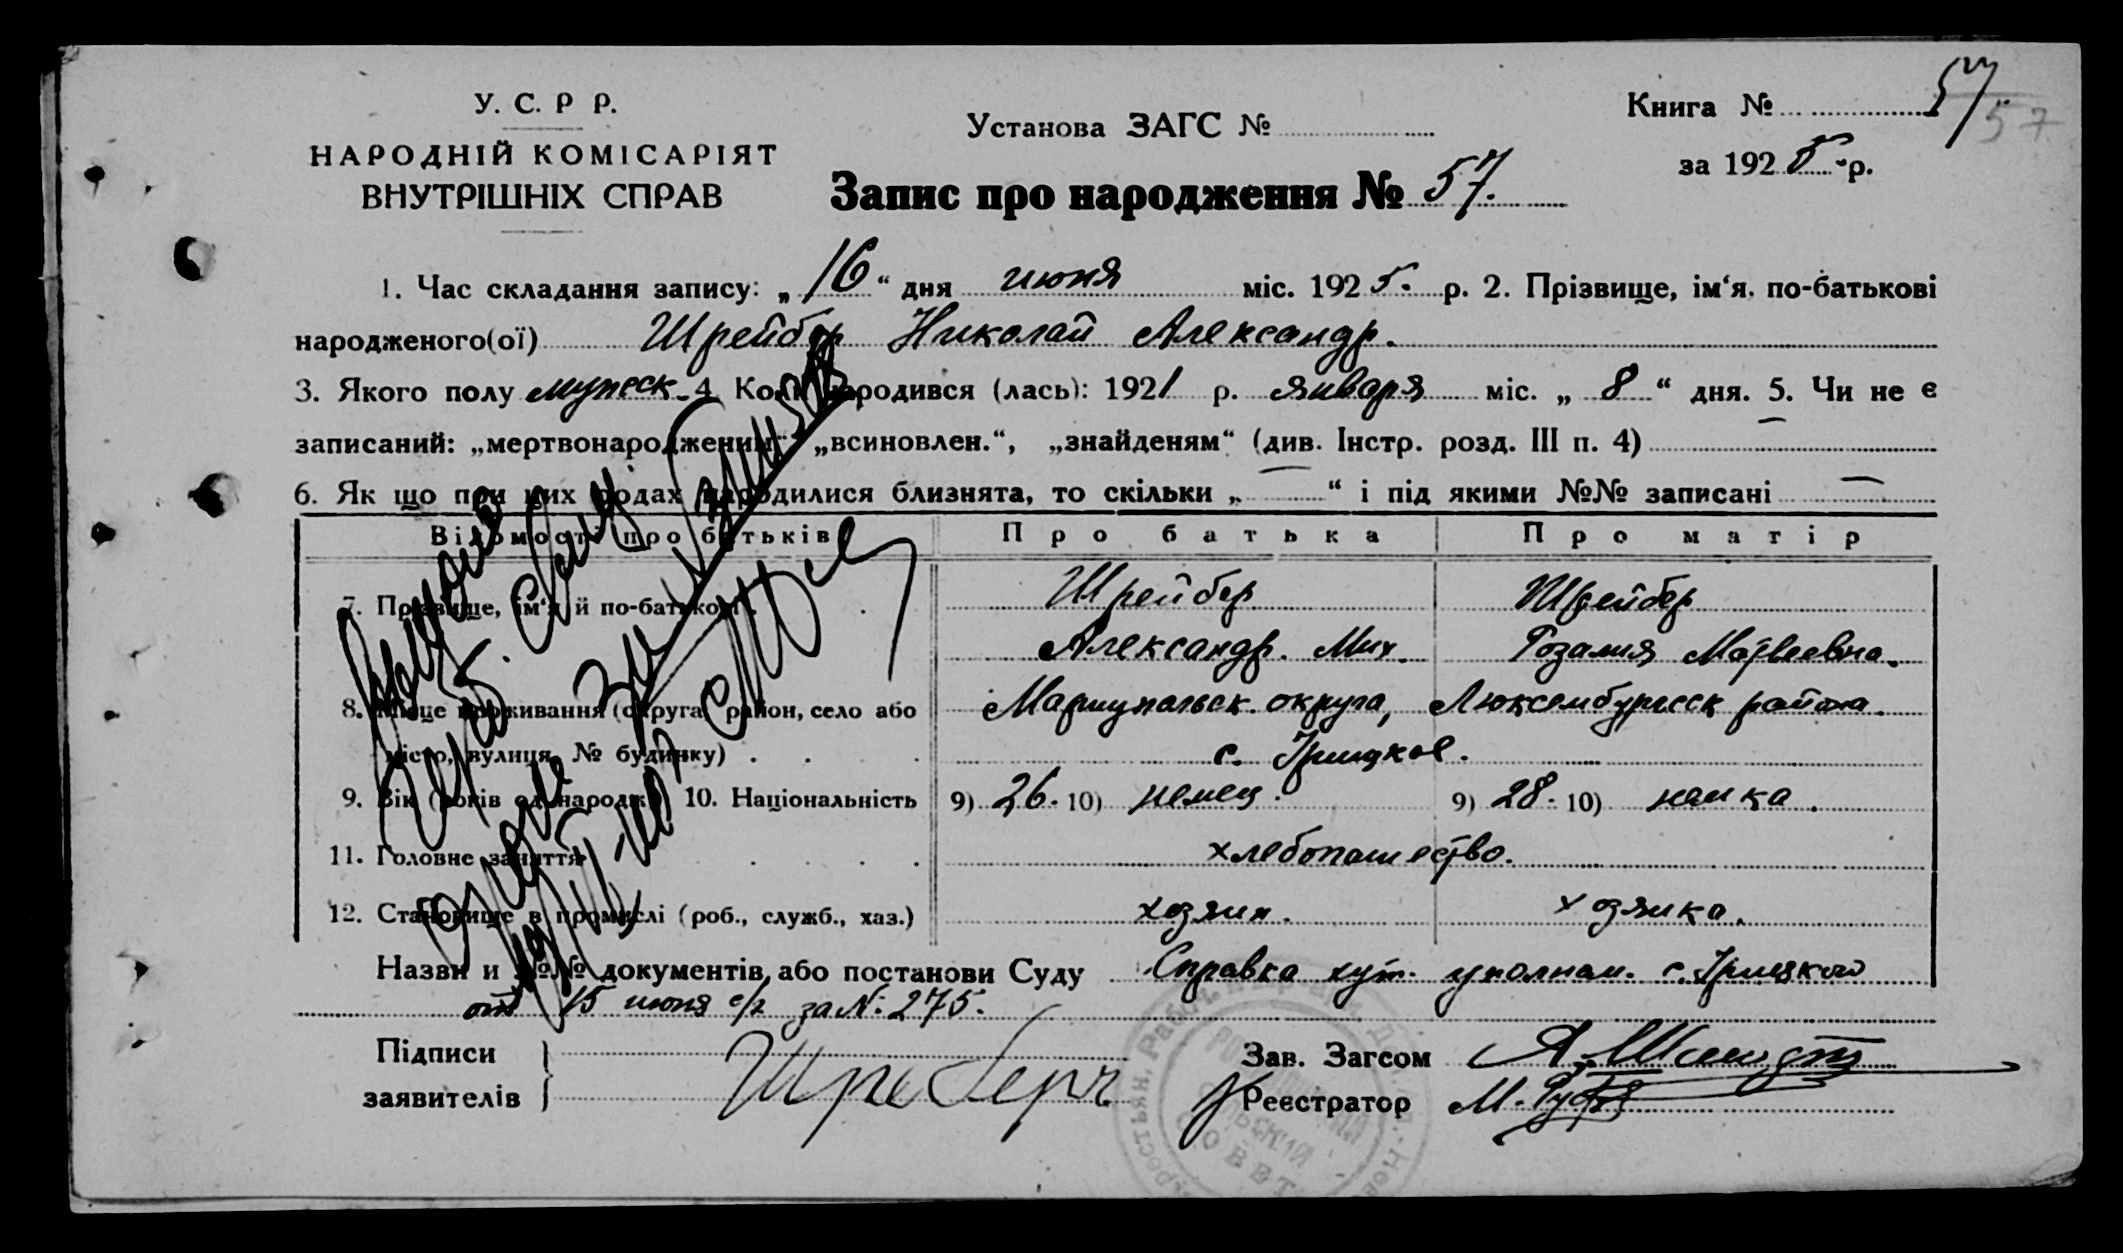 У. С. Р Р.
НАРОДНІЙ КОМІСАРІЯТ
ВНУТРІШНІХ СПРАВ
Установа ЗАГС №
Книга № 57
57
за 1925 р.
Запис про народження № 57.
1. Час складання запису: „16“ дня июня міс. 1925. р. 2. Прізвище, ім‘я, по-батькові
народженого(ої) Шрейбер Николай Александр.
3. Якого полу мужеск. 4. Коли народився (лась): 1921 р. января міс. „8“ дня. 5. Чи не є
записаний: „мертвонародженим“ „всиновлен.“, „знайденям“ (див. Інстр. розд. III п. 4) —
6. Як що при цих родах народилися близнята, то скільки „—“ і під якими №№ записані —
Відомості про батьків Про батька Про матір
7. Прізвище, ім‘я й по-батькові . . Шрейбер Шрейбер
Александр. Мих. Розалия Матвеевна.
8. Місце проживання (округа, район, село або Мариупольск. округа, Люксембургск района.
місто, вулиця, № будинку) . . . с.
9. Вік (років од народж.) 10. Національність 9) 26. 10) немец. 9) 28. 10) немка.
11. Головне заняття . . . . хлебопашество.
12. Становище в промислі (роб., служб., хаз.) хозяин. хозяйка.
Назви и №№ документів або постанови Суду Справка хут. уполном. с.
от 15 июня с/г за №: 275.
Підписи
заявителів
Зав. Загсом А. Шмидт
Реєстратор М.